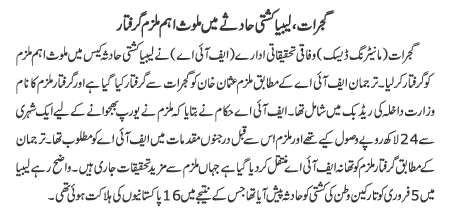 گجرات، لیبیا کشتی حادثے میں ملوث اہم ملزم گرفتار
گجرات (مانیٹرنگ ڈیسک) وفاقی تحقیقاتی ادارے (ایف آئی اے) نے لیبیا کشتی حادثہ کیس میں ملوث اہم ملزم
کو گرفتار کر لیا۔ ترجمان ایف آئی اے کے مطابق ملزم عثمان خان کو گجرات سے گرفتار کیا گیا ہے اور گرفتار ملزم کا نام
وزارت داخلہ کی ریڈ بک میں شامل تھا۔ ایف آئی اے حکام نے بتایا کہ ملزم نے یورپ بھجوانے کے لیے ایک شہری
سے 24 لاکھ روپے وصول کیے تھے اور ملزم اس سے قبل درجنوں مقدمات میں ایف آئی اے کو مطلوب تھا۔ ترجمان کے
مطابق گرفتار ملزم کو تھانہ ایف آئی اے منتقل کر دیا گیا ہے جہاں ملزم سے مزید تحقیقات جاری ہیں۔ واضح رہے لیبیا
میں 5 فروری کو تارکین وطن کی کشتی کو حادثہ پیش آیا تھا جس کے نتیجے میں 16 پاکستانیوں کی ہلاکت ہوئی تھی۔